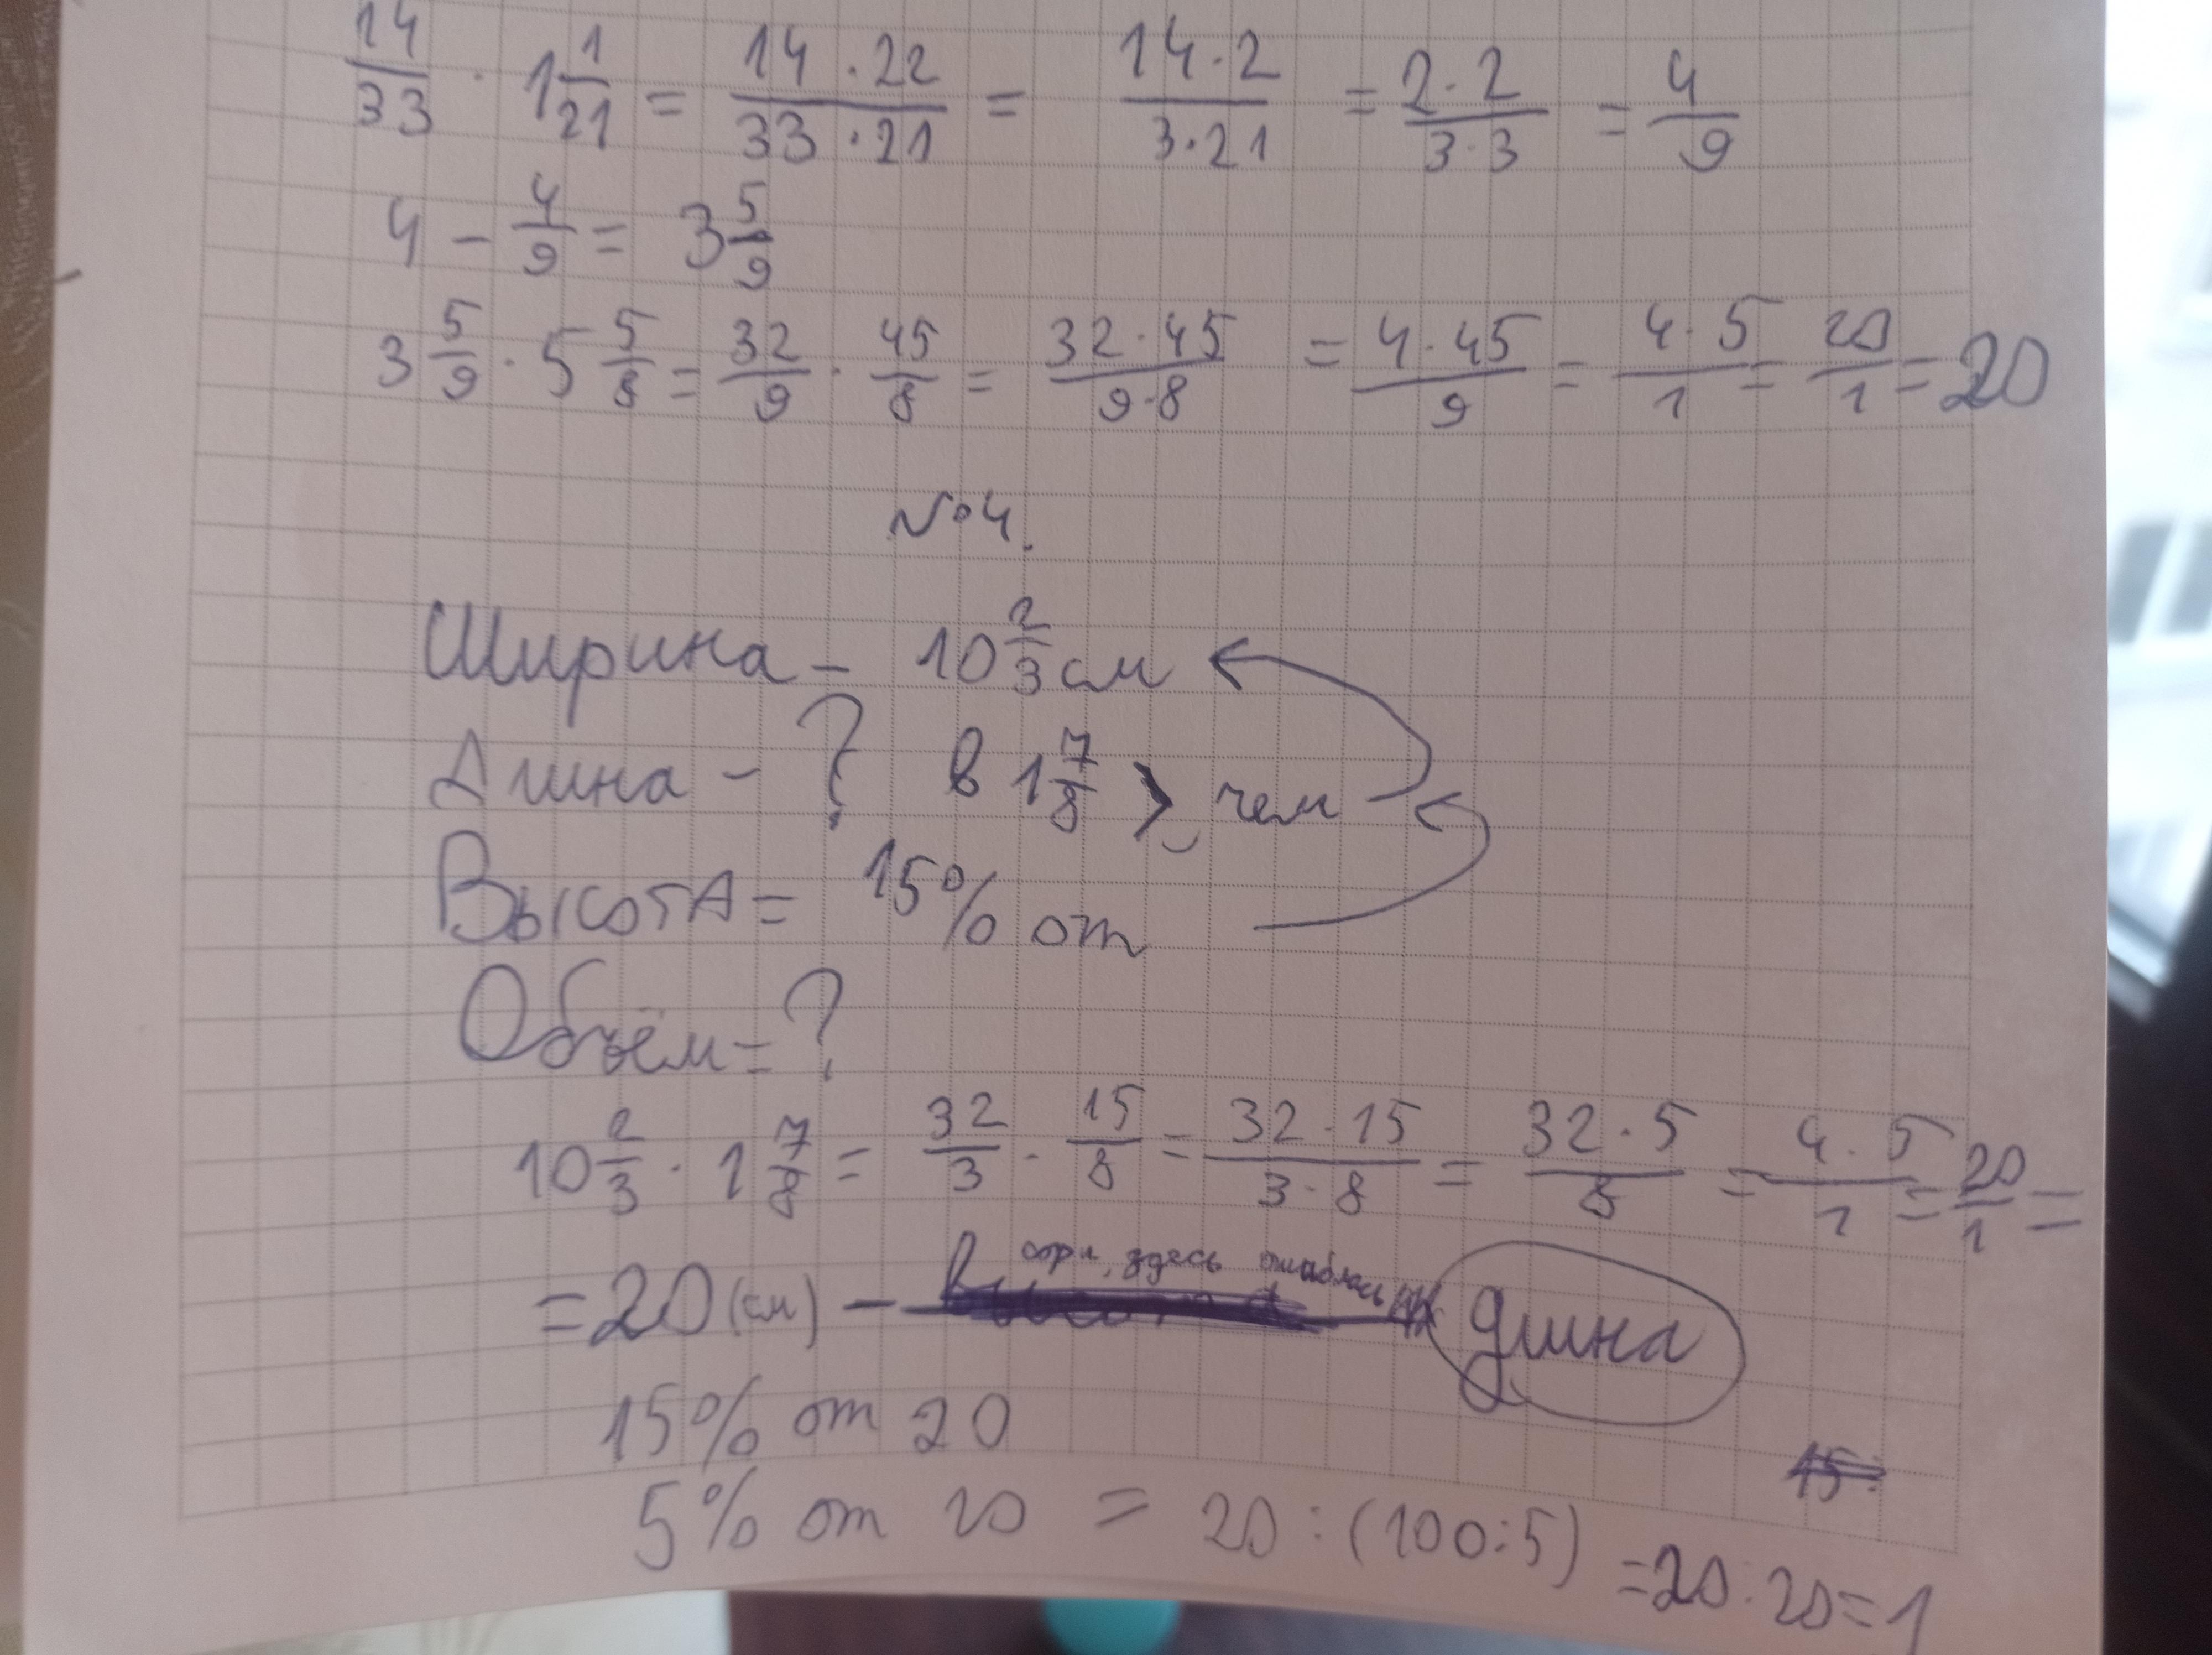 14/33 · 1 1/21 = 14·22/33·21 = 14·2/3·21 = 2·2/3·3 = 4/9
4 - 4/9 = 3 5/9
3 5/9 · 5 5/8 = 32/9 · 45/8 = 32·45/9·8 = 4·45/9 = 4·5/1 = 20/1 = 20
№4.
Ширина - 10 2/3 см
Длина - ? в 1 7/8 >, чем
Высота = 15% от
Объём = ?
10 2/3 · 1 7/8 = 32/3 · 15/8 = 32·15/3·8 = 32·5/8 = 4·5/1 = 20/1 =
= 20 (см) - сори, здесь ошиблась длина
15% от 20
15:
5% от 20 = 20 : (100:5) = 20:20=1